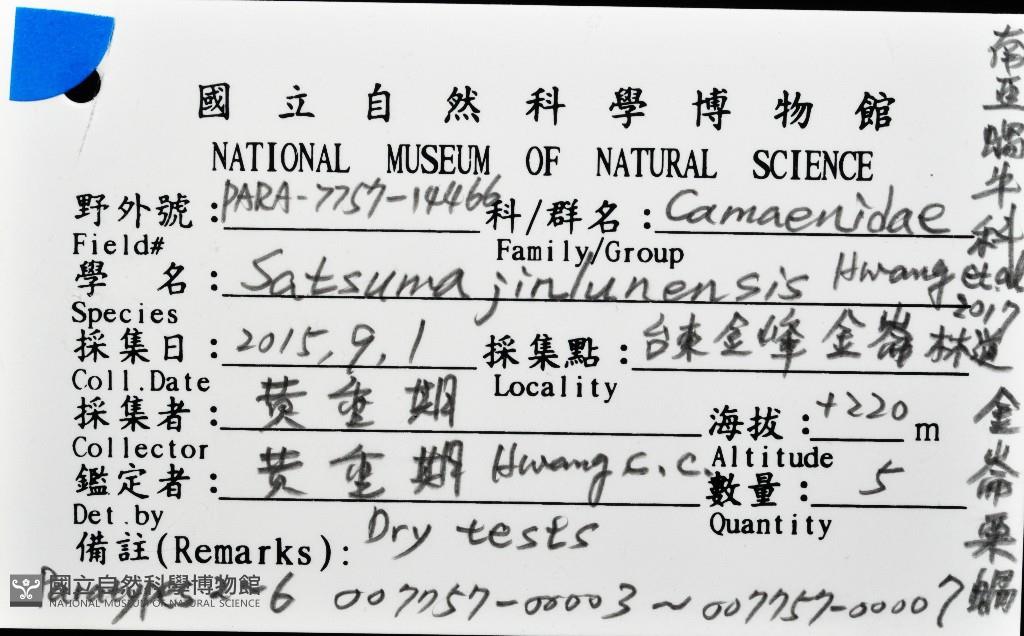 國立自然科學博物館
NATIONAL MUSEUM OF NATURAL SCIENCE
野外號：PARA-7757-14466 科/群名：Camaenidae
Field# Family/Group
學 名：Satsuma jinlunensis Hwang et al 2017
Species
採集日：2015,9,1 採集點：台東金峰金崙林道
Coll.Date Locality
採集者：黃重期 海拔：+220 m
Collector Altitude
鑑定者：黃重期 Hwang C.C. 數量：5
Det.by Quantity
備註(Remarks)：Dry tests
Paratypes 2-6 007757-00003～007757-00007
國立自然科學博物館
NATIONAL MUSEUM OF NATURAL SCIENCE
南亞蝸牛科
金崙栗蝸